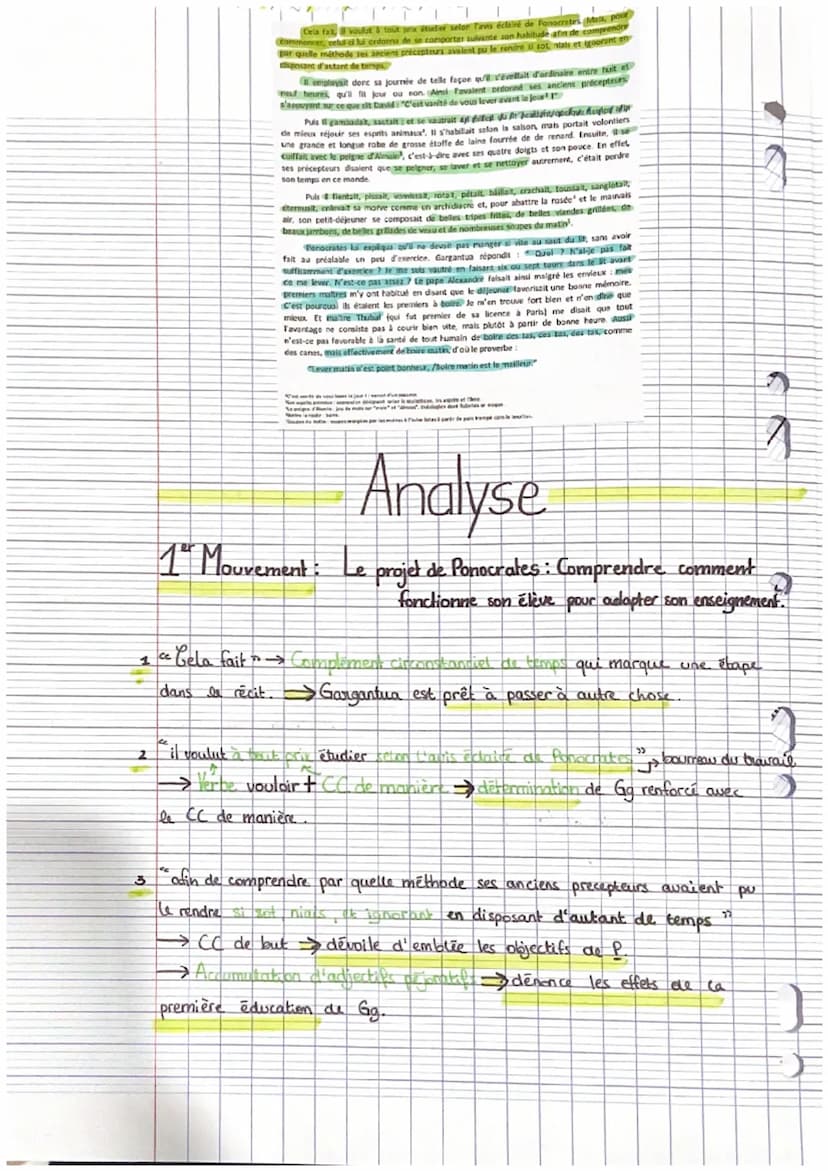 Cela fait, il voulut à tout prix étudier selon l'avis éclairé de Ponocrates. Mais, pour
commencer, celui-ci lui ordonna de se comporter suivante son habitude afin de comprendre
par quelle méthode ses anciens précepteurs avaient pu le rendre si sot, niais et ignorant en
disposant d'autant de temps.
Il employait donc sa journée de telle façon qu'il s'éveillait d'ordinaire entre huit et
neuf heures, qu'il fît jour ou non. Ainsi l'avaient ordonné ses anciens précepteurs,
s'appuyant sur ce que dit David : "C'est vanité de vous lever avant le jour¹ !"
Puis il gambadait, sautait ; et se vautrait
de mieux réjouir ses esprits animaux². Il s'habillait selon la saison, mais portait volontiers
une grande et longue robe de grosse étoffe de laine fourrée de de renard. Ensuite, il se
coiffait avec le peigne d'Almain³, c'est-à-dire avec ses quatre doigts et son pouce. En effet,
ses précepteurs disaient que se peigner, se laver et se nettoyer autrement, c'était perdre
son temps en ce monde.
Puis il fientait, pissait, vomissait, rotait, pétait, bâillait, crachait, toussait, sanglotait,
éternuait, enlevait sa morve comme un archidiacre et, pour abattre la rosée⁴ et le mauvais
air, son petit-déjeuner se composait de belles tripes frites, de belles viandes grillées, de
beaux jambons, de belles grillades de veau et de nombreuses soupes du matin⁵.
Ponocrates lui expliqua qu'il ne devait pas manger si vite au saut du lit, sans avoir
fait au préalable un peu d'exercice. Gargantua répondit : " Quoi ? N'ai-je pas fait
suffisamment d'exercice ? Je me suis vautré en faisant six ou sept tours dans le lit avant
de me lever. N'est-ce pas assez ? Le pape Alexandre faisait ainsi malgré les envieux : mes
premiers maîtres m'y ont habitué en disant que le déjeuner favorisait une bonne mémoire.
C'est pourquoi ils étaient les premiers à boire. Je m'en trouve fort bien et n'en dîne que
mieux. Et maître Thubal (qui fut premier de sa licence à Paris) me disait que tout
l'avantage ne consiste pas à courir bien vite, mais plutôt à partir de bonne heure. Aussi
n'est-ce pas favorable à la santé de tout humain de boire des tas, des tas, des tas, comme
des canes, mais effectivement de boire matin, d'où le proverbe :
"Lever matin n'est point bonheur, /Boire matin est le meilleur."
Analyse
1er Mouvement : Le projet de Ponocrates : Comprendre comment
fonctionne son élève pour adapter son enseignement.
1 "Cela fait" → Complément circonstanciel de temps qui marque une étape
dans le récit. ⇒ Gargantua est prêt à passer à autre chose.
2 "il voulut à tout prix étudier selon l'avis éclairé de Ponocrates" ↳ bourreau du travail
→ Verbe vouloir + CC de manière ⇒ détermination de Gg renforcé avec
le CC de manière.
3 "afin de comprendre par quelle méthode ses anciens precepteurs avaient pu
le rendre si sot, niais, et ignorant en disposant d'autant de temps"
→ CC de but ⇒ dévoile d'emblée les objectifs de P.
→ Accumulation d'adjectifs péjoratifs ⇒ dénonce les effets de la
première éducation de Gg.